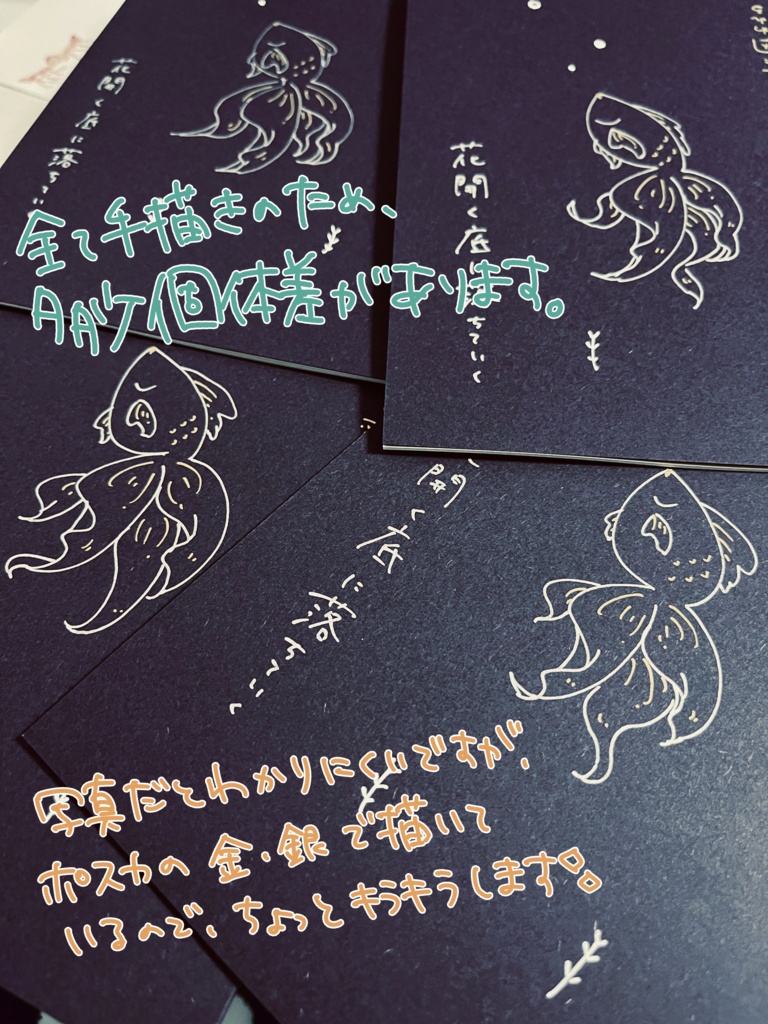 花開く底に落ちてい
花開く底に落ちていく
全て手描きのため、
多少個体差があります。
開く底に落ちていく
写真だとわかりにくいですが、
ポスカの金・銀で描いて
いるので、ちょっとキラキラします